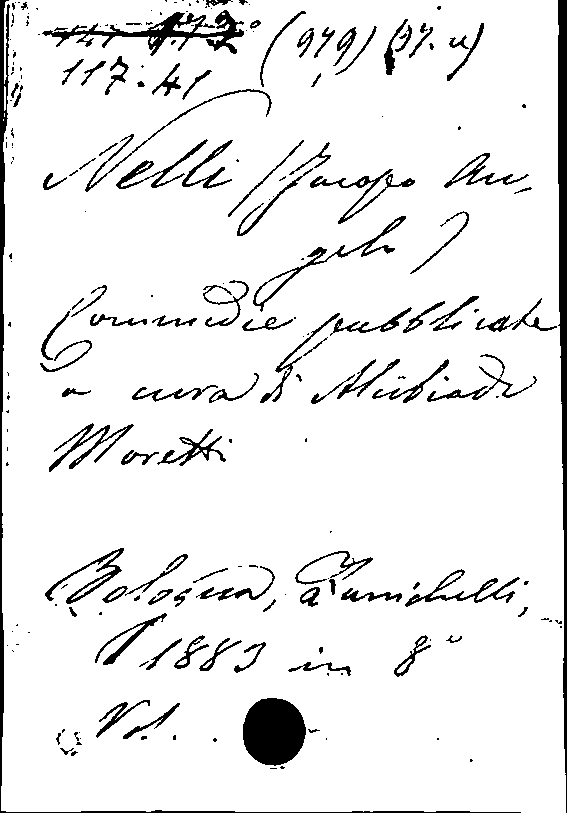 (979) (37. u)
117.41
Nelli (Jacopo An-
gelo)
Commedie pubblicate
a cura di Alcibiade
Moretti
Bologna, Zanichelli,
1883 in 8°
Vol.